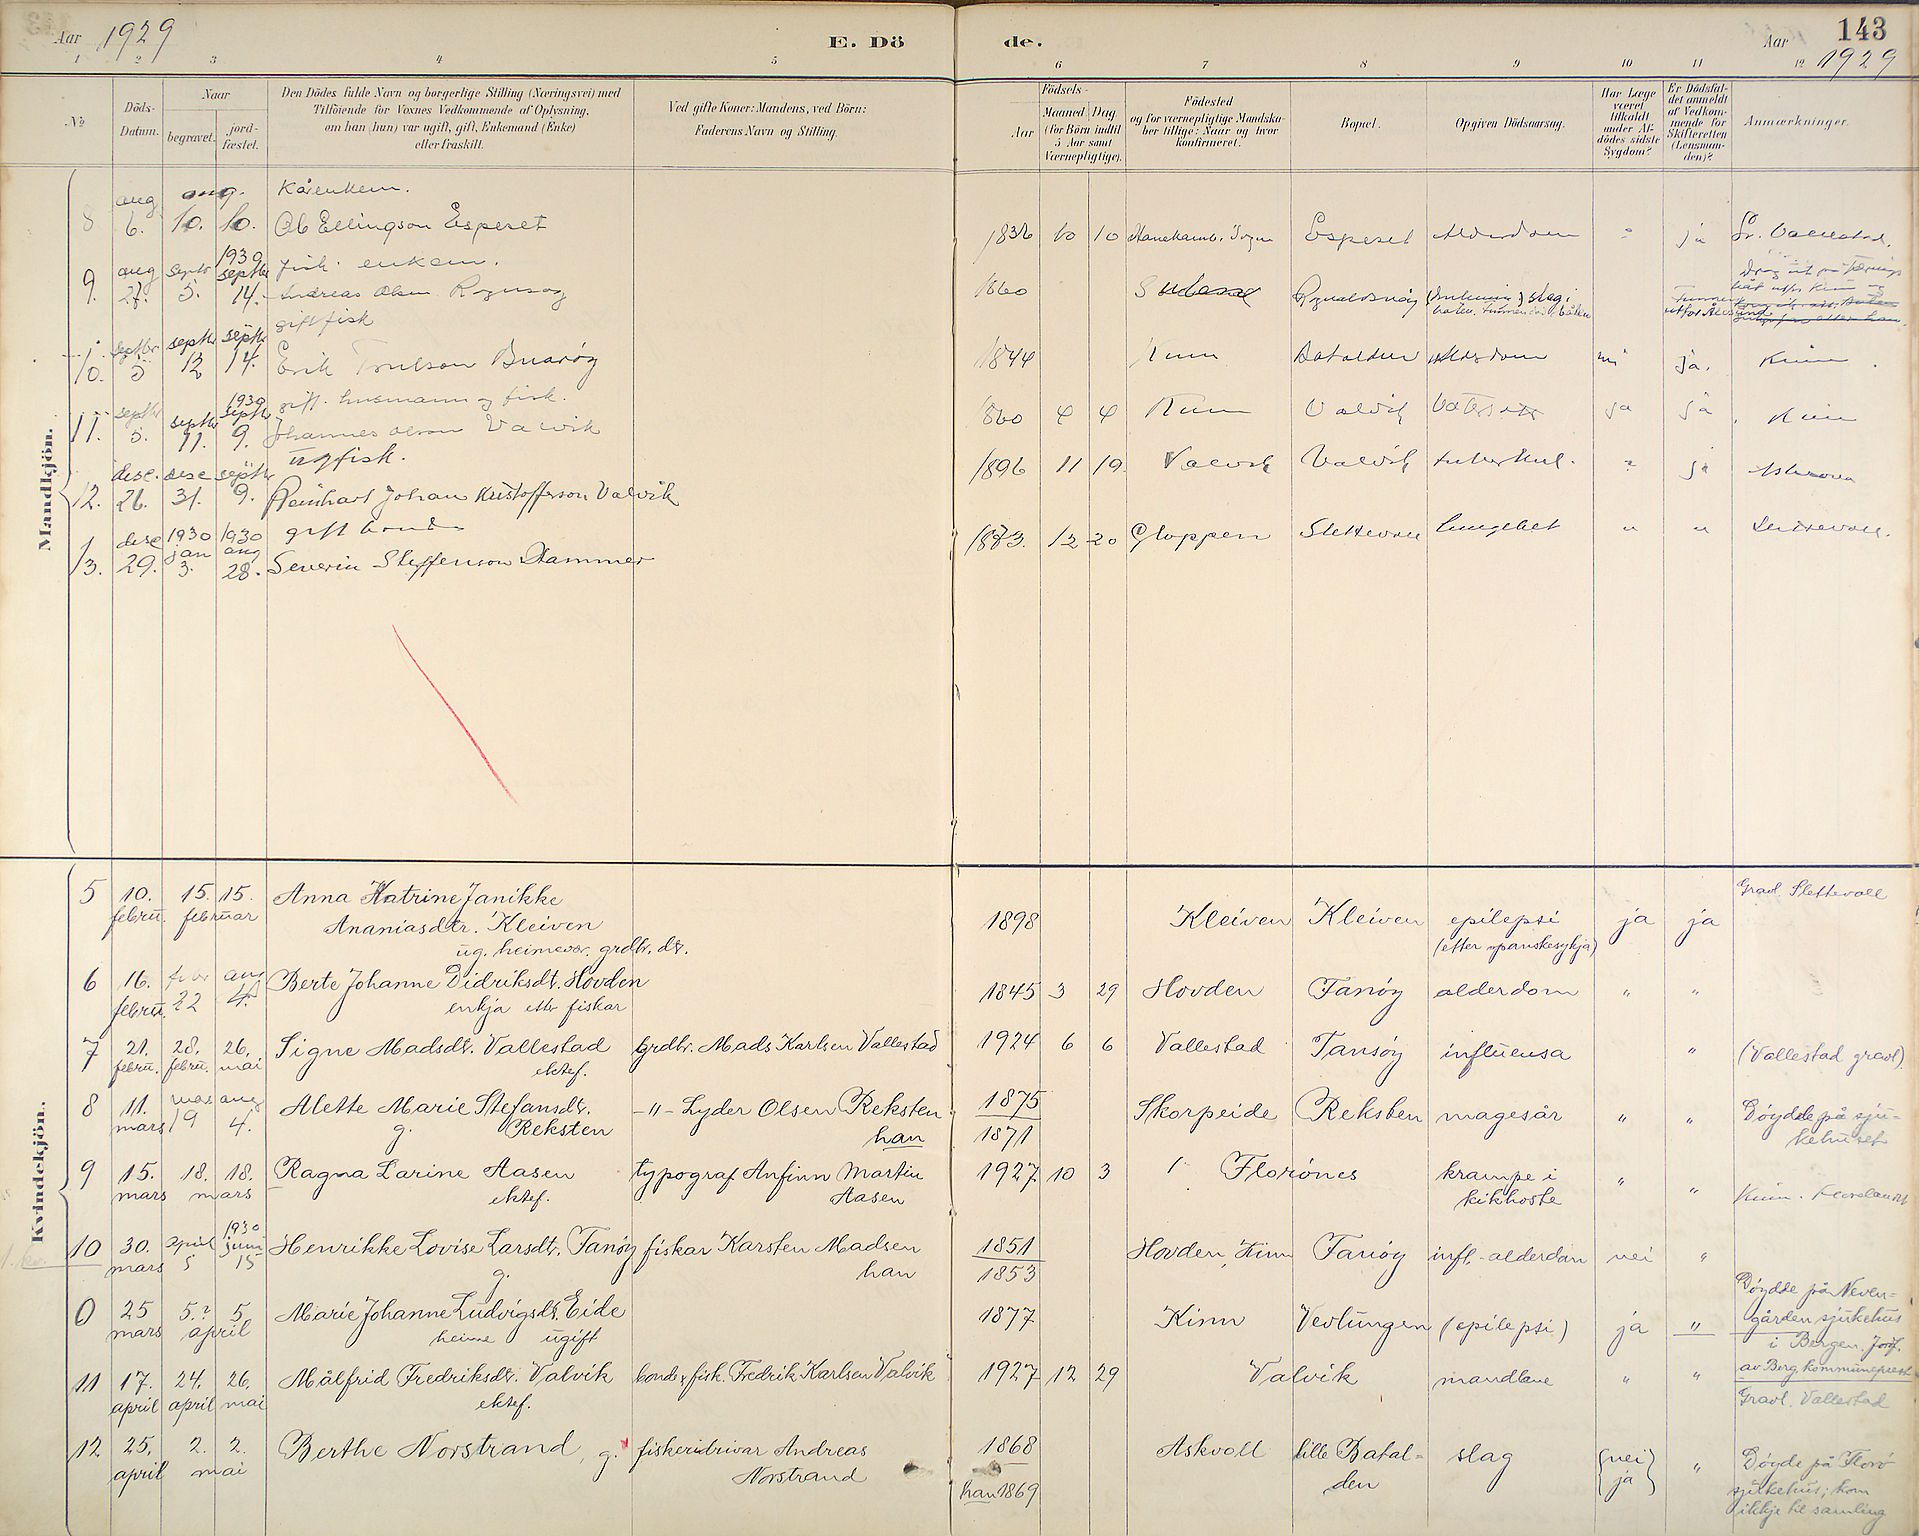 Aar 1929
E. Dö
de.
Aar 1929
143
1 2 3 4 5 6 7 8 9 10 11 12
No
Döds-
Datum.
Naar
begravet.
jord-
fæstet.
Den Dödes fulde Navn og borgerlige Stilling (Næringsvei) med
Tilföiende for Voxnes Vedkommende af Oplysning,
om han (hun) var ugift, gift, Enkemand (Enke)
eller fraskilt.
Ved gifte Koner: Mandens, ved Börn:
Faderens Navn og Stilling.
Födsels-
Aar
Maaned Dag
(for Börn indtil
5 Aar samt
Værnepligtige).
Födested
og for værnepligtige Mandska-
ber tillige: Naar og hvor
konfirmeret.
Bopæl.
Opgiven Dödsaarsag.
Har Læge
været
tilkaldt
under Af-
dödes sidste
Sygdom?
Er Dödsfal-
det anmeldt
af Vedkom-
mende for
Skifteretten
(Lensman-
den)?
Anmærkninger.
Mandkjön.
aug aug. Kårenkem.
8 6. 10. 10. Ole Ellingson Espeset 1836 10 10 Espeset Alderdom " ja Vallestad.
1930
9. aug 27. septbr 5. septbr 14. fisk. enkem.
Andreas Olsen 1860
gift fisk
10. septbr 5 septbr 12 septbr 14. Erik Trulson 1844 Kinn Batalden Alderdom nei ja. Kinn.
1930
11. septbr 5. septbr 11. septbr 9. gift. husmann og fisk.
Johannes Olson Valvik 1860 4 4 Kinn Valvik ja ja Kinn
ug fisk.
12. dese. 26. dese 31. septbr 9. Reinhart Johan Kristofferson Valvik 1896 11 19. Valvik Valvik tuberkul. " ja
13. dese 29. 1930 jan 3. 1930 aug 28. gift bonde
Severin Steffenson Hammer 1873. 12 20 Gloppen Slettevoll " " Slettevoll.
Kvindekjön.
5 10. februr. 15. 15. februar Anna Katrine Janikke
Ananiasdtr. Kleiven
ug. heimevær. grdbr. dt.
1898 Kleiven Kleiven epilepsi
(etter spanskesykja)
ja ja Gravl. Slettevoll
6 16. februr. febr 22 aug 4. Berte Johanne Didriksdt. Hovden
enkja ettr fiskar
1845 3 29 Hovden Tansöy alderdom " "
7 21. februr. 28. februr. 26. mai Signe Madsdt. Vallestad
ektef.
grdbr. Mads Karlsen Vallestad 1924 6 6 Vallestad Tansöy influensa " (Vallestad gravl)
8 11. mars mars 19 aug 4. Alette Marie Stefansdt.
g. Reksten
-"- Lyder Olsen Reksten
han
1875
1871
Skorpeide Reksten magesår " " Döydde på sju-
kehuset
9 15. mars 18. 18. mars Ragna Larine Aasen
ektef.
typograf Anfinn Martin
Aasen
1927 10 3 Florönes krampe i
kikhoste
" " Kinn.
10 30. mars april 5 1930 juni 15 Henrikke Lovise Larsdt. Tansöy
g.
fiskar Karsten Madsen
han
1851
1853
Hovden, Kinn Tansöy infl.-alderdom nei "
0 25 mars 5.? 5. april Marie Johanne Ludvigsdt. Eide
heime ugift
1877 Kinn Vevlungen (epilepsi) ja " Döydde på Neven-
gården sjukehus
i Bergen. Jordf.
av Berg. kommuneprest
11 17. april 24. april 26. mai Målfrid Fredriksdt. Valvik
ektef.
bonde & fisk. Fredrik Karlsen Valvik 1927 12 29 Valvik " " Gravl. Vallestad
12 25. april 2. 2. mai Berthe Norstrand, g. fiskeridrivar Andreas
Norstrand
1868
han 1869
Askvoll lille Batal-
den
slag (nei) " Döyde på Florö
(ja) sjukehus; kom
ikkje til samling